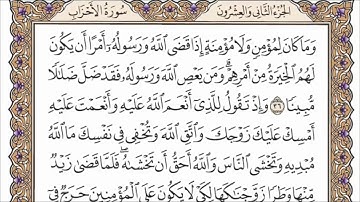 الجزء الثاني والعشرون سورة الأحزاب
وَمَا كَانَ لِمُؤْمِنٍ وَلَا مُؤْمِنَةٍ إِذَا قَضَى ٱللَّهُ وَرَسُولُهُۥٓ أَمْرًا أَن يَكُونَ
لَهُمُ ٱلْخِيَرَةُ مِنْ أَمْرِهِمْ ۗ وَمَن يَعْصِ ٱللَّهَ وَرَسُولَهُۥ فَقَدْ ضَلَّ ضَلَٰلًا
مُّبِينًا ٣٦ وَإِذْ تَقُولُ لِلَّذِىٓ أَنْعَمَ ٱللَّهُ عَلَيْهِ وَأَنْعَمْتَ عَلَيْهِ
أَمْسِكْ عَلَيْكَ زَوْجَكَ وَٱتَّقِ ٱللَّهَ وَتُخْفِى فِى نَفْسِكَ مَا ٱللَّهُ
مُبْدِيهِ وَتَخْشَى ٱلنَّاسَ وَٱللَّهُ أَحَقُّ أَن تَخْشَىٰهُ ۖ فَلَمَّا قَضَىٰ زَيْدٌ
مِّنْهَا وَطَرًا زَوَّجْنَٰكَهَا لِكَىْ لَا يَكُونَ عَلَى ٱلْمُؤْمِنِينَ حَرَجٌ فِىٓ